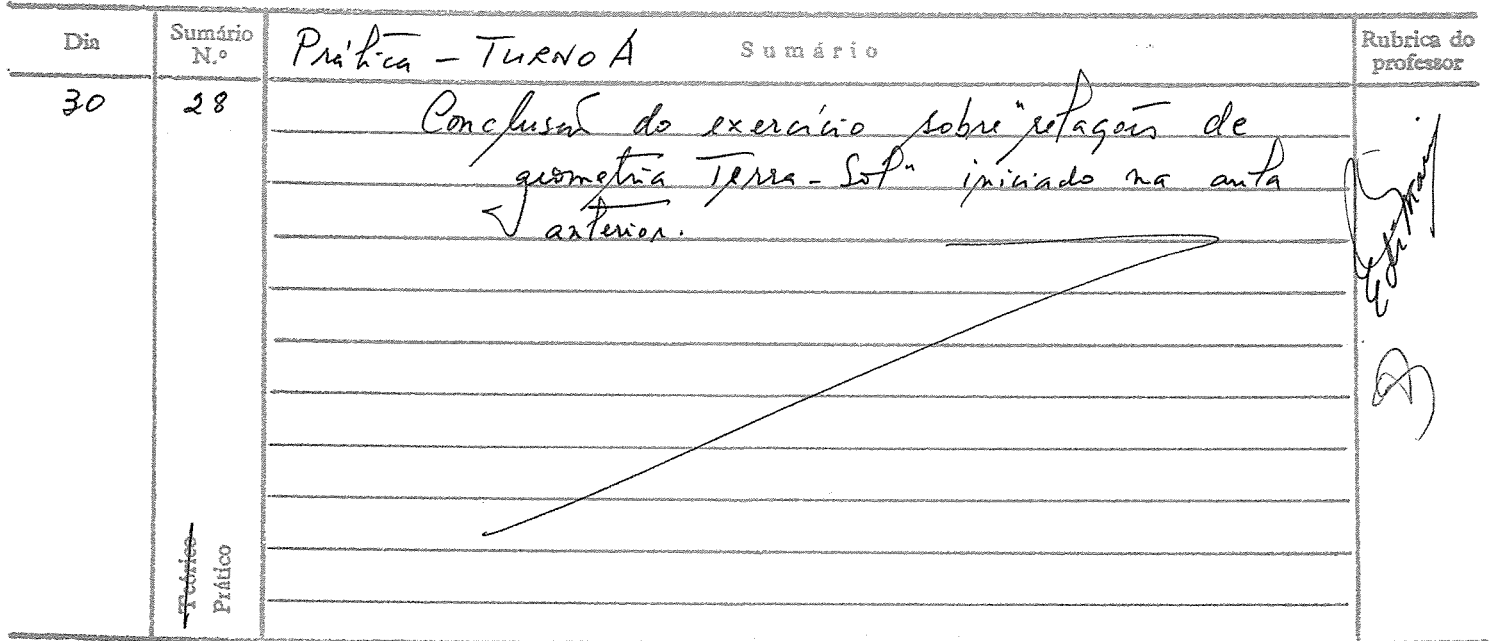 Dia
Sumário N.º
Prática - TURNO A
Sumário
Rubrica do professor
30
28
Conclusão do exercício sobre "relações de
geometria Terra-Sol" iniciado na aula
anterior.
Teórico
Prático